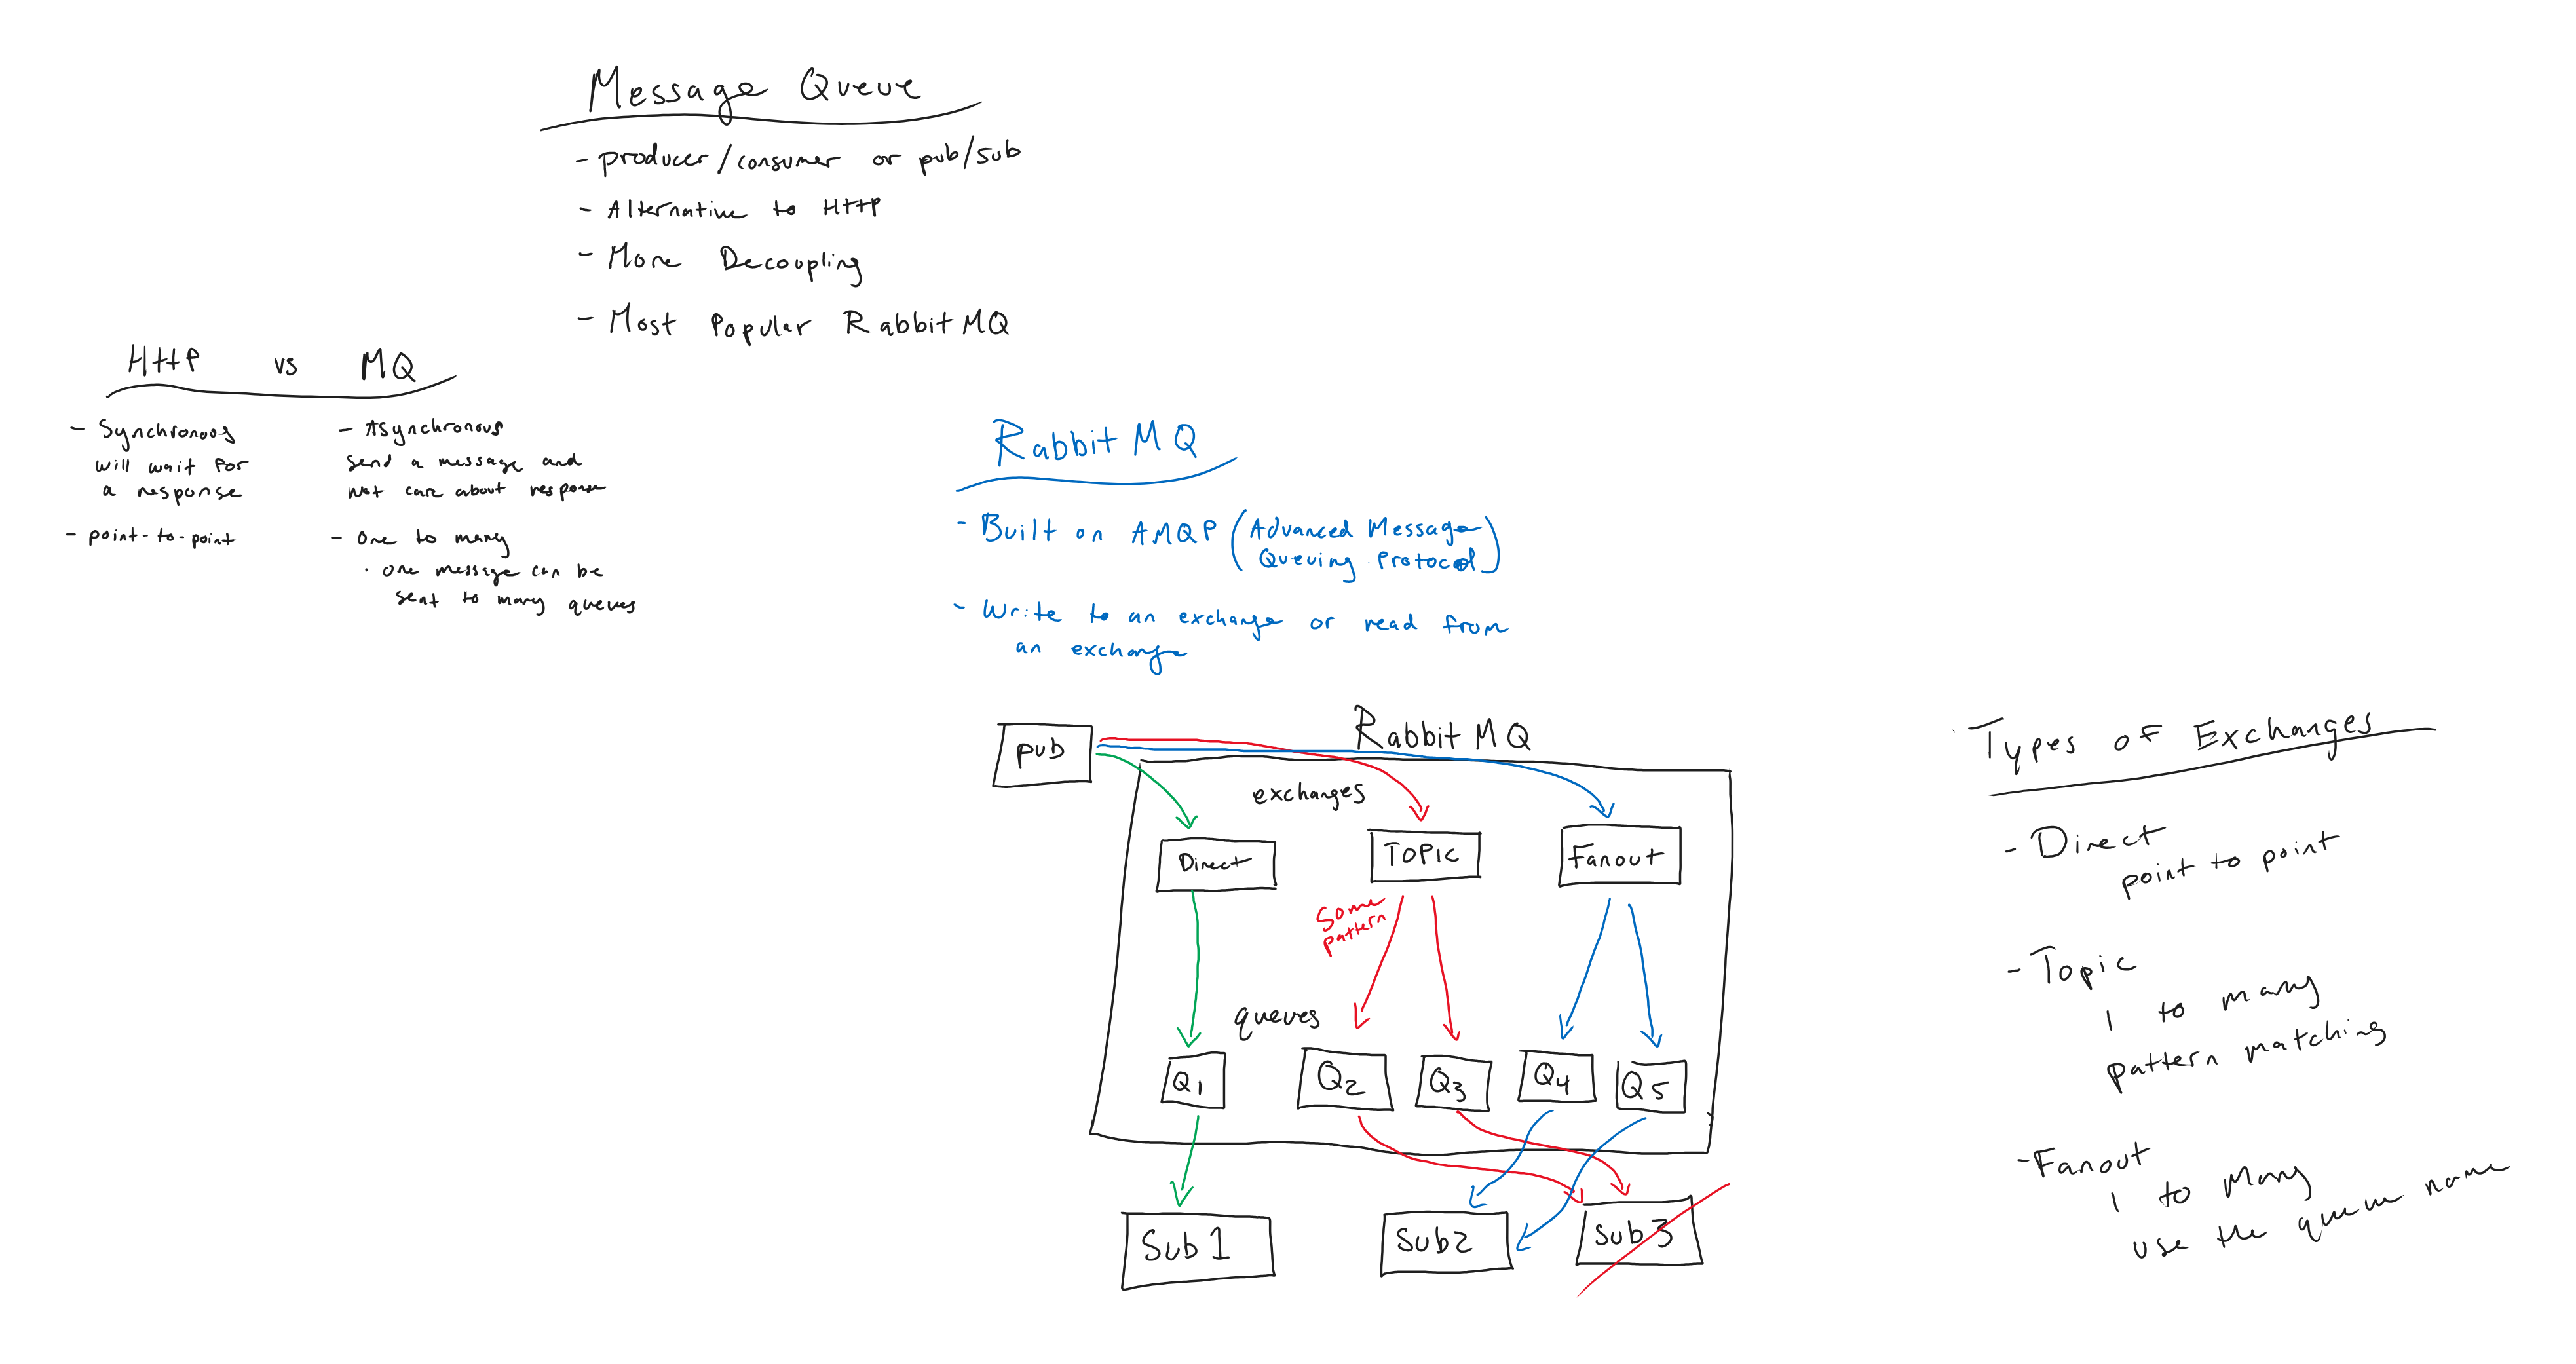 Message Queue
- producer/consumer or pub/sub
- Alternative to HTTP
- More Decoupling
- Most Popular RabbitMQ
HTTP vs MQ
- Synchronous
will wait for
a response
- point-to-point
- Asynchronous
send a message and
not care about response
- one to many
· one message can be
sent to many queues
RabbitMQ
- Built on AMQP (Advanced Message
Queuing Protocol)
- Write to an exchange or read from
an exchange
pub
RabbitMQ
exchanges
Direct
TOPIC
Fanout
Some
pattern
queues
Q1
Q2
Q3
Q4
Q5
Sub1
Sub2
Sub3
Types of Exchanges
- Direct
point to point
- Topic
1 to many
pattern matching
- Fanout
1 to Many
use the queue name